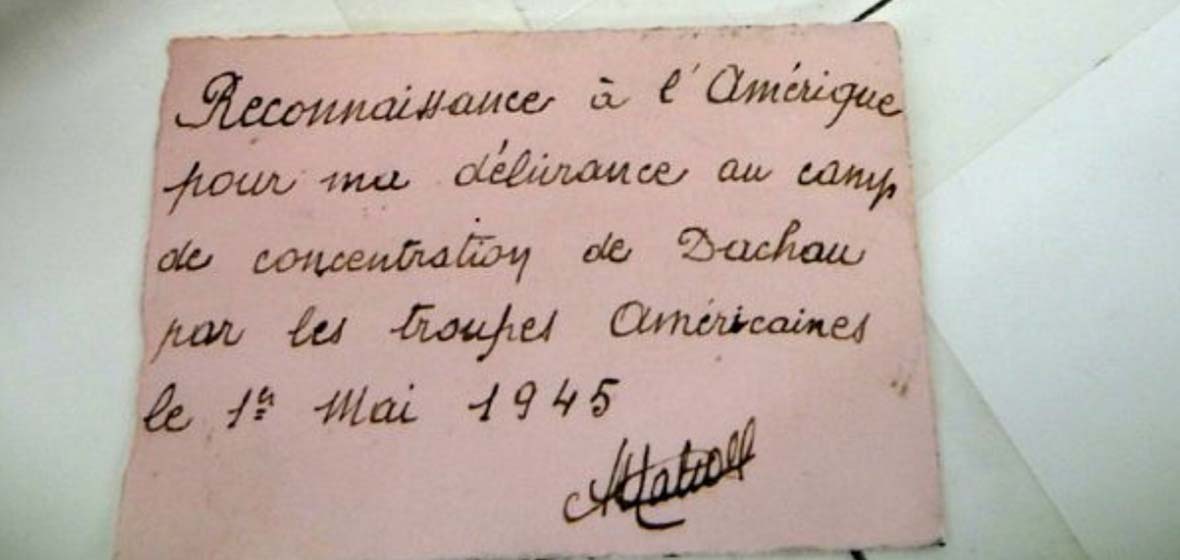 Reconnaissance à l'Amérique
pour ma délivrance au camp
de concentration de Dachau
par les troupes Américaines
le 1er Mai 1945